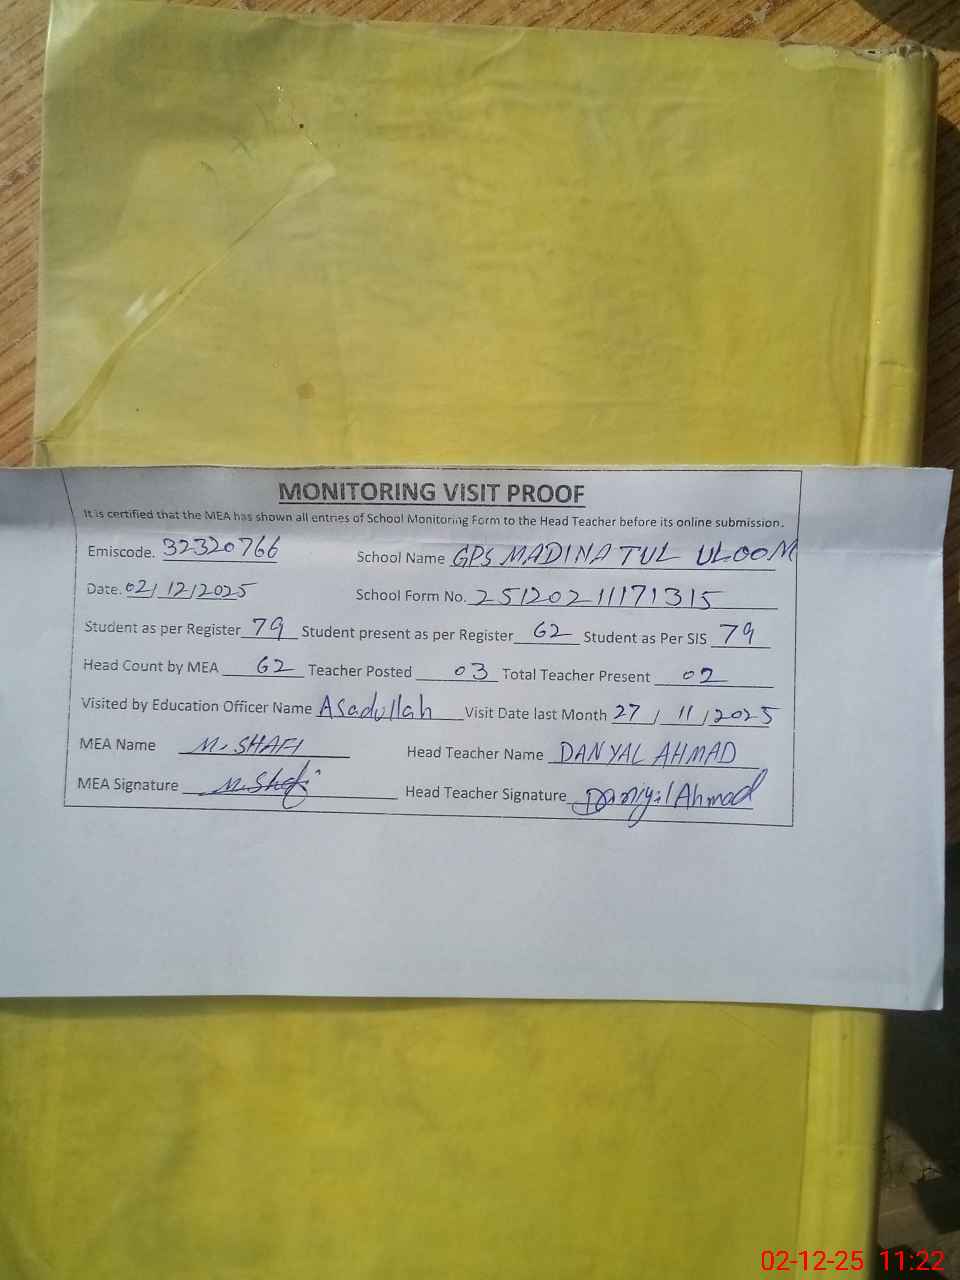 MONITORING VISIT PROOF
It is certified that the MEA has shown all entries of School Monitoring Form to the Head Teacher before its online submission.
Emiscode. 32320766 School Name GPS MADINA TUL ULOOM
Date. 02/12/2025 School Form No. 251202111171315
Student as per Register 79 Student present as per Register 62 Student as Per SIS 79
Head Count by MEA 62 Teacher Posted 03 Total Teacher Present 02
Visited by Education Officer Name Asadullah Visit Date last Month 27/11/2025
MEA Name M. SHAFI Head Teacher Name DANYAL AHMAD
MEA Signature M. Shafi Head Teacher Signature Daniyal Ahmad
02-12-25 11:22